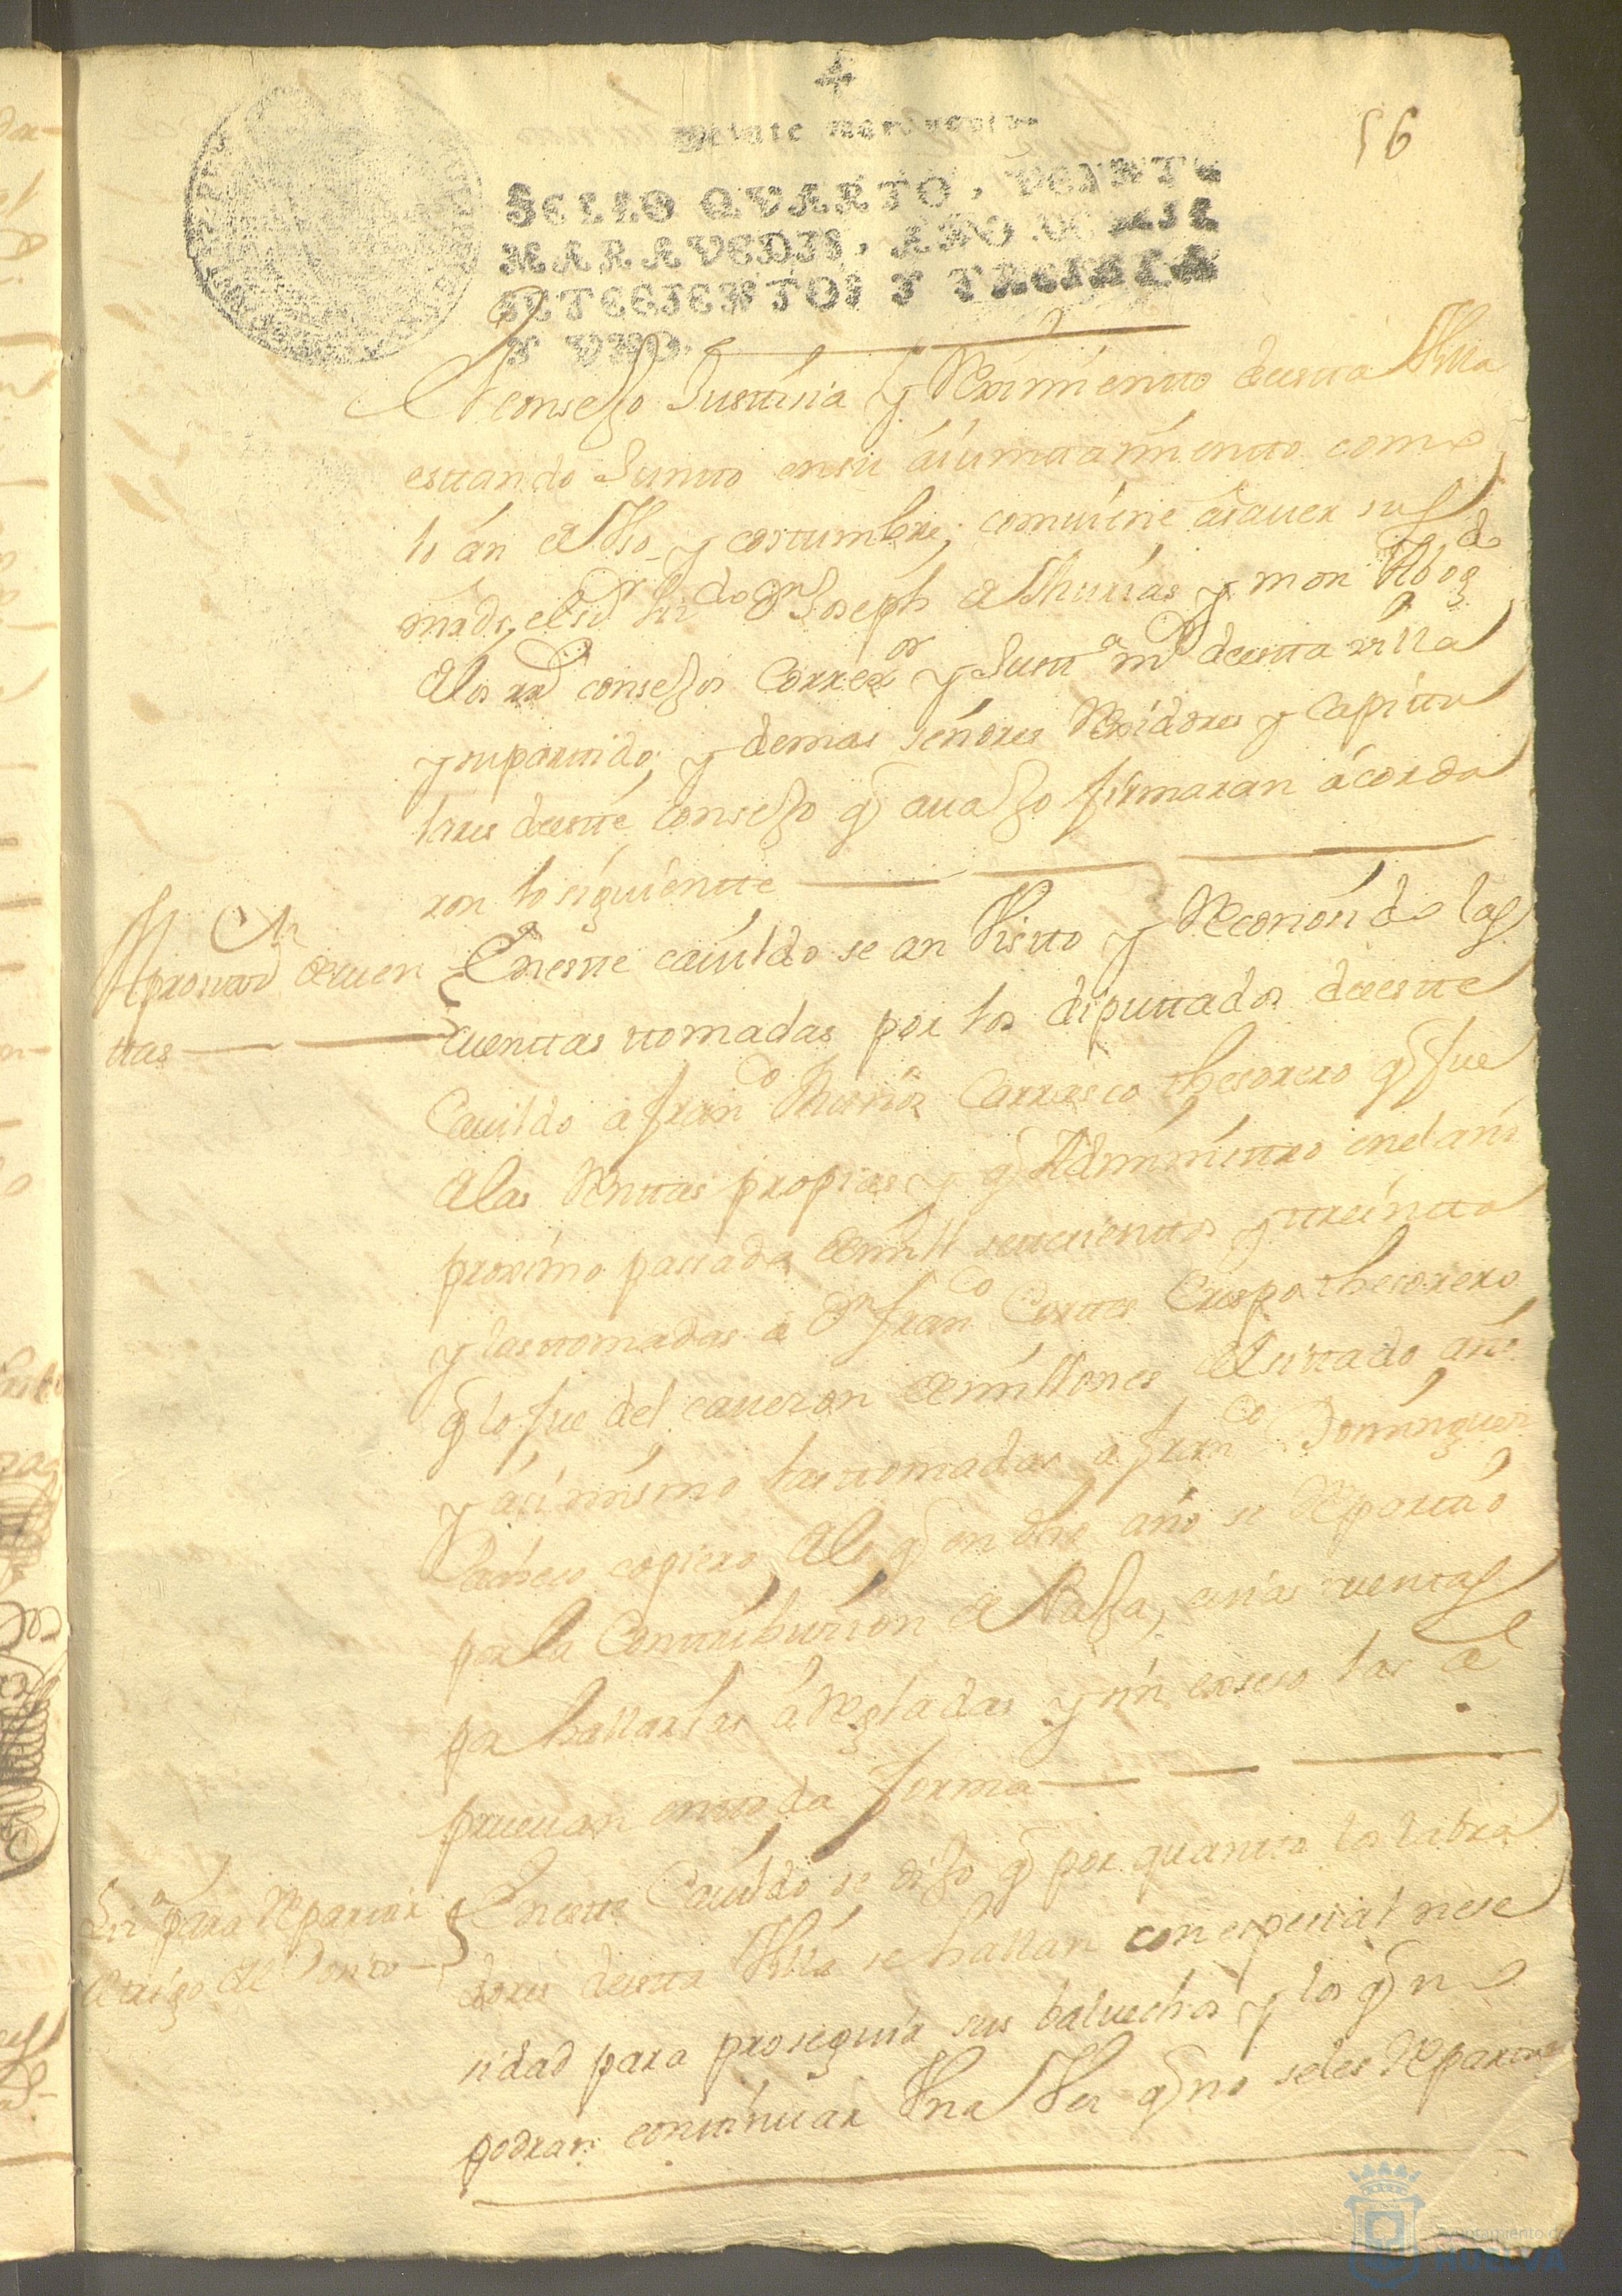 56
Veinte maravedis
SELLO QVARTO, VEINTE
MARAVEDIS, AÑO DE MIL
SETECIENTOS Y TREINTA
Y VNO.
El consejo Justticia y Reximientto de estta Villa
esttando Juntto en su aiunttamientto como
lo an de Vso y costtumbre, combiene a sauer sus
mrds, el sr Lizdo Dn Joseph de Abogdo
de los rs consejos Correxor y Justta mr de estta villa
y su parttido, y demas señores Rexidores y Capittu
lares de estte Consejo q auajo firmaran acorda
ron lo siguientte
Aprouaon de cuen
ttas
En estte cauildo se an Vistto y Reconosido las
cuenttas ttomadas por los diputtados de estte
Cauildo a Franco Carrasco thesorero q fue
de las Renttas propias y q Administtro en el año
proximo passado de mill settecienttos y ttreintta
y las ttomadas a Dn Franco Corttes Crespo thesorero
q lo fue del caueron de millones del cittado año
y asimismo las ttomadas a Franco Dominguez
Pacheco cogiero de lo q en dho año se Reparttio
por la Conttribucion de Paja, cuias cuenttas
por hallarlas aRegladas y sin exseso las a
prueuan en ttoda forma
Liza para Reparttir
el trigo del Positto
En estte Cauildo se dijo q por quantto los labra
dores de estta Villa se hallan con espesial nese
sidad para proseguir sus baruechos y los q no
podran conttinuar Vna Vez q no se les Reparta
Ayuntamiento de
HUELVA